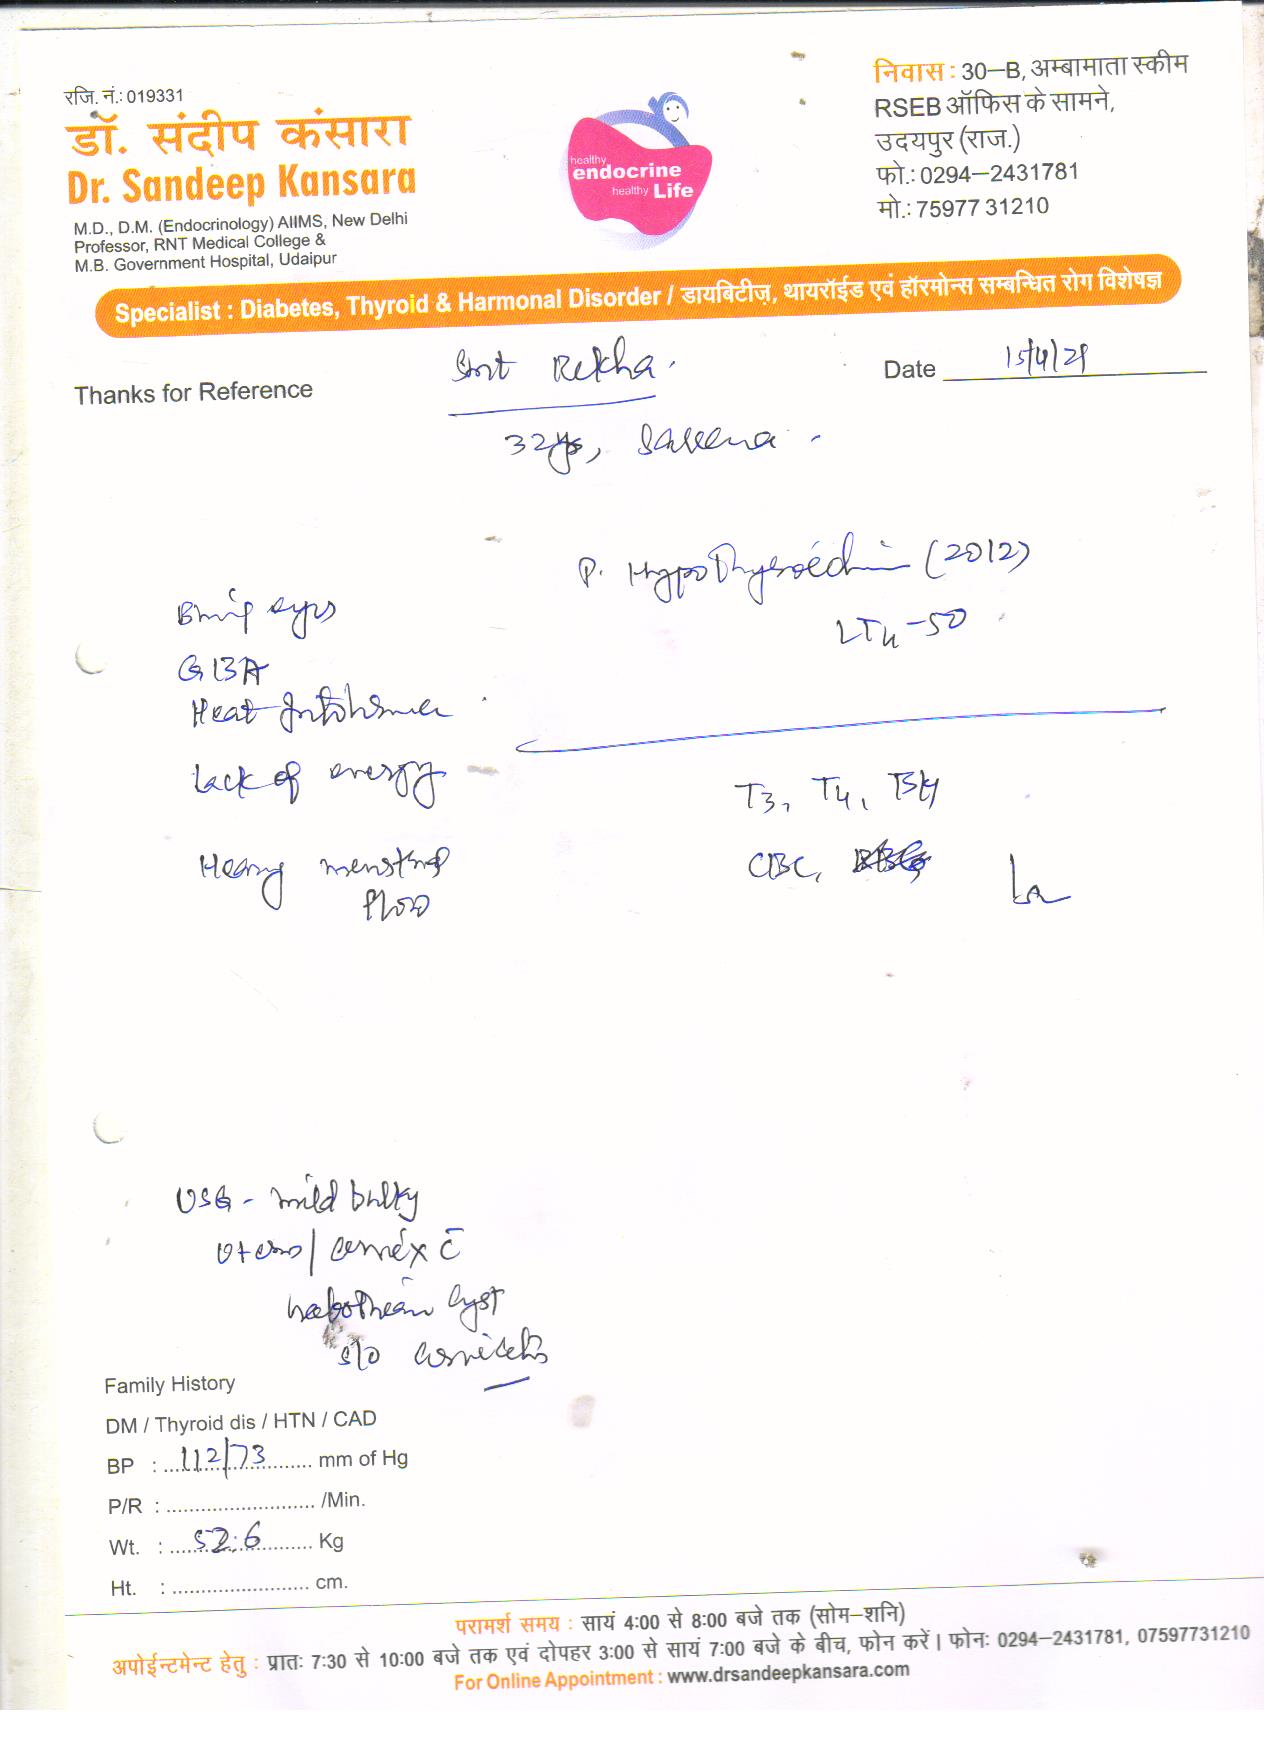 रजि. नं.: 019331
डॉ. संदीप कंसारा
Dr. Sandeep Kansara
M.D., D.M. (Endocrinology) AIIMS, New Delhi
Professor, RNT Medical College &
M.B. Government Hospital, Udaipur
healthy
endocrine
healthy Life
निवास : 30–B, अम्बामाता स्कीम
RSEB ऑफिस के सामने,
उदयपुर (राज.)
फो.: 0294–2431781
मो.: 75977 31210
Specialist : Diabetes, Thyroid & Harmonal Disorder / डायबिटीज़, थायरॉईड एवं हॉरमोन्स सम्बन्धित रोग विशेषज्ञ
Thanks for Reference
Smt Rekha.
Date 15/4/21
32yrs,
P. Hypothyroidism (2012)
LT4 -50
eyes
GBA
Heat Intolerance
Lack of energy
T3, T4, TSH
Heavy menstrual
flow
CBC,
USG - mild bulky
uterus / cervix c̄
nabothean cyst
s/o cervicitis
Family History
DM / Thyroid dis / HTN / CAD
BP : 112/73 mm of Hg
P/R : ......................... /Min.
Wt. : 52.6 Kg
Ht. : ........................ cm.
परामर्श समय : सायं 4:00 से 8:00 बजे तक (सोम–शनि)
अपोईन्टमेन्ट हेतु : प्रातः 7:30 से 10:00 बजे तक एवं दोपहर 3:00 से सायं 7:00 बजे के बीच, फोन करें। फोनः 0294–2431781, 07597731210
For Online Appointment : www.drsandeepkansara.com